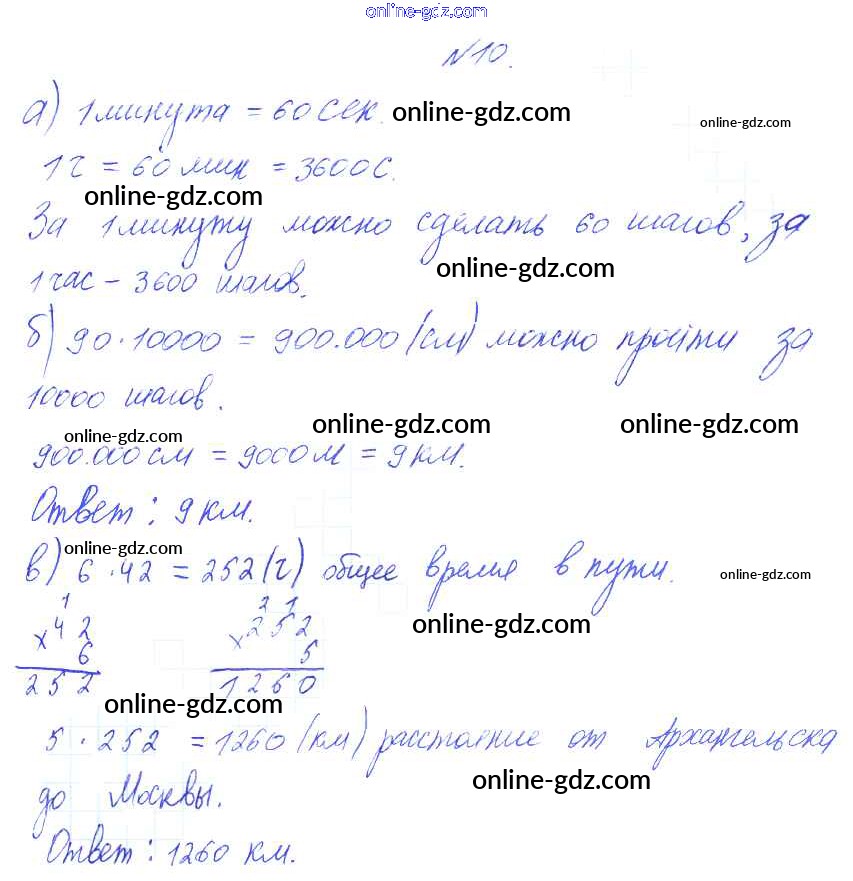 online-gdz.com
№10.
а) 1 минута = 60 сек. online-gdz.com
online-gdz.com
1 ч = 60 мин = 3600 с.
online-gdz.com
За 1 минуту можно сделать 60 шагов, за
online-gdz.com
1 час - 3600 шагов.
б) 90·10000 = 900.000 (см) можно пройти за
10000 шагов.
online-gdz.com online-gdz.com online-gdz.com
900.000 см = 9000 м = 9 км.
Ответ: 9 км.
online-gdz.com
в) 6·42 = 252 (ч) общее время в пути.
online-gdz.com
1 2 1
×42 ×252
online-gdz.com
6 5
252 1260
online-gdz.com
5·252 = 1260 (км) расстояние от Архангельска
online-gdz.com
до Москвы.
Ответ: 1260 км.